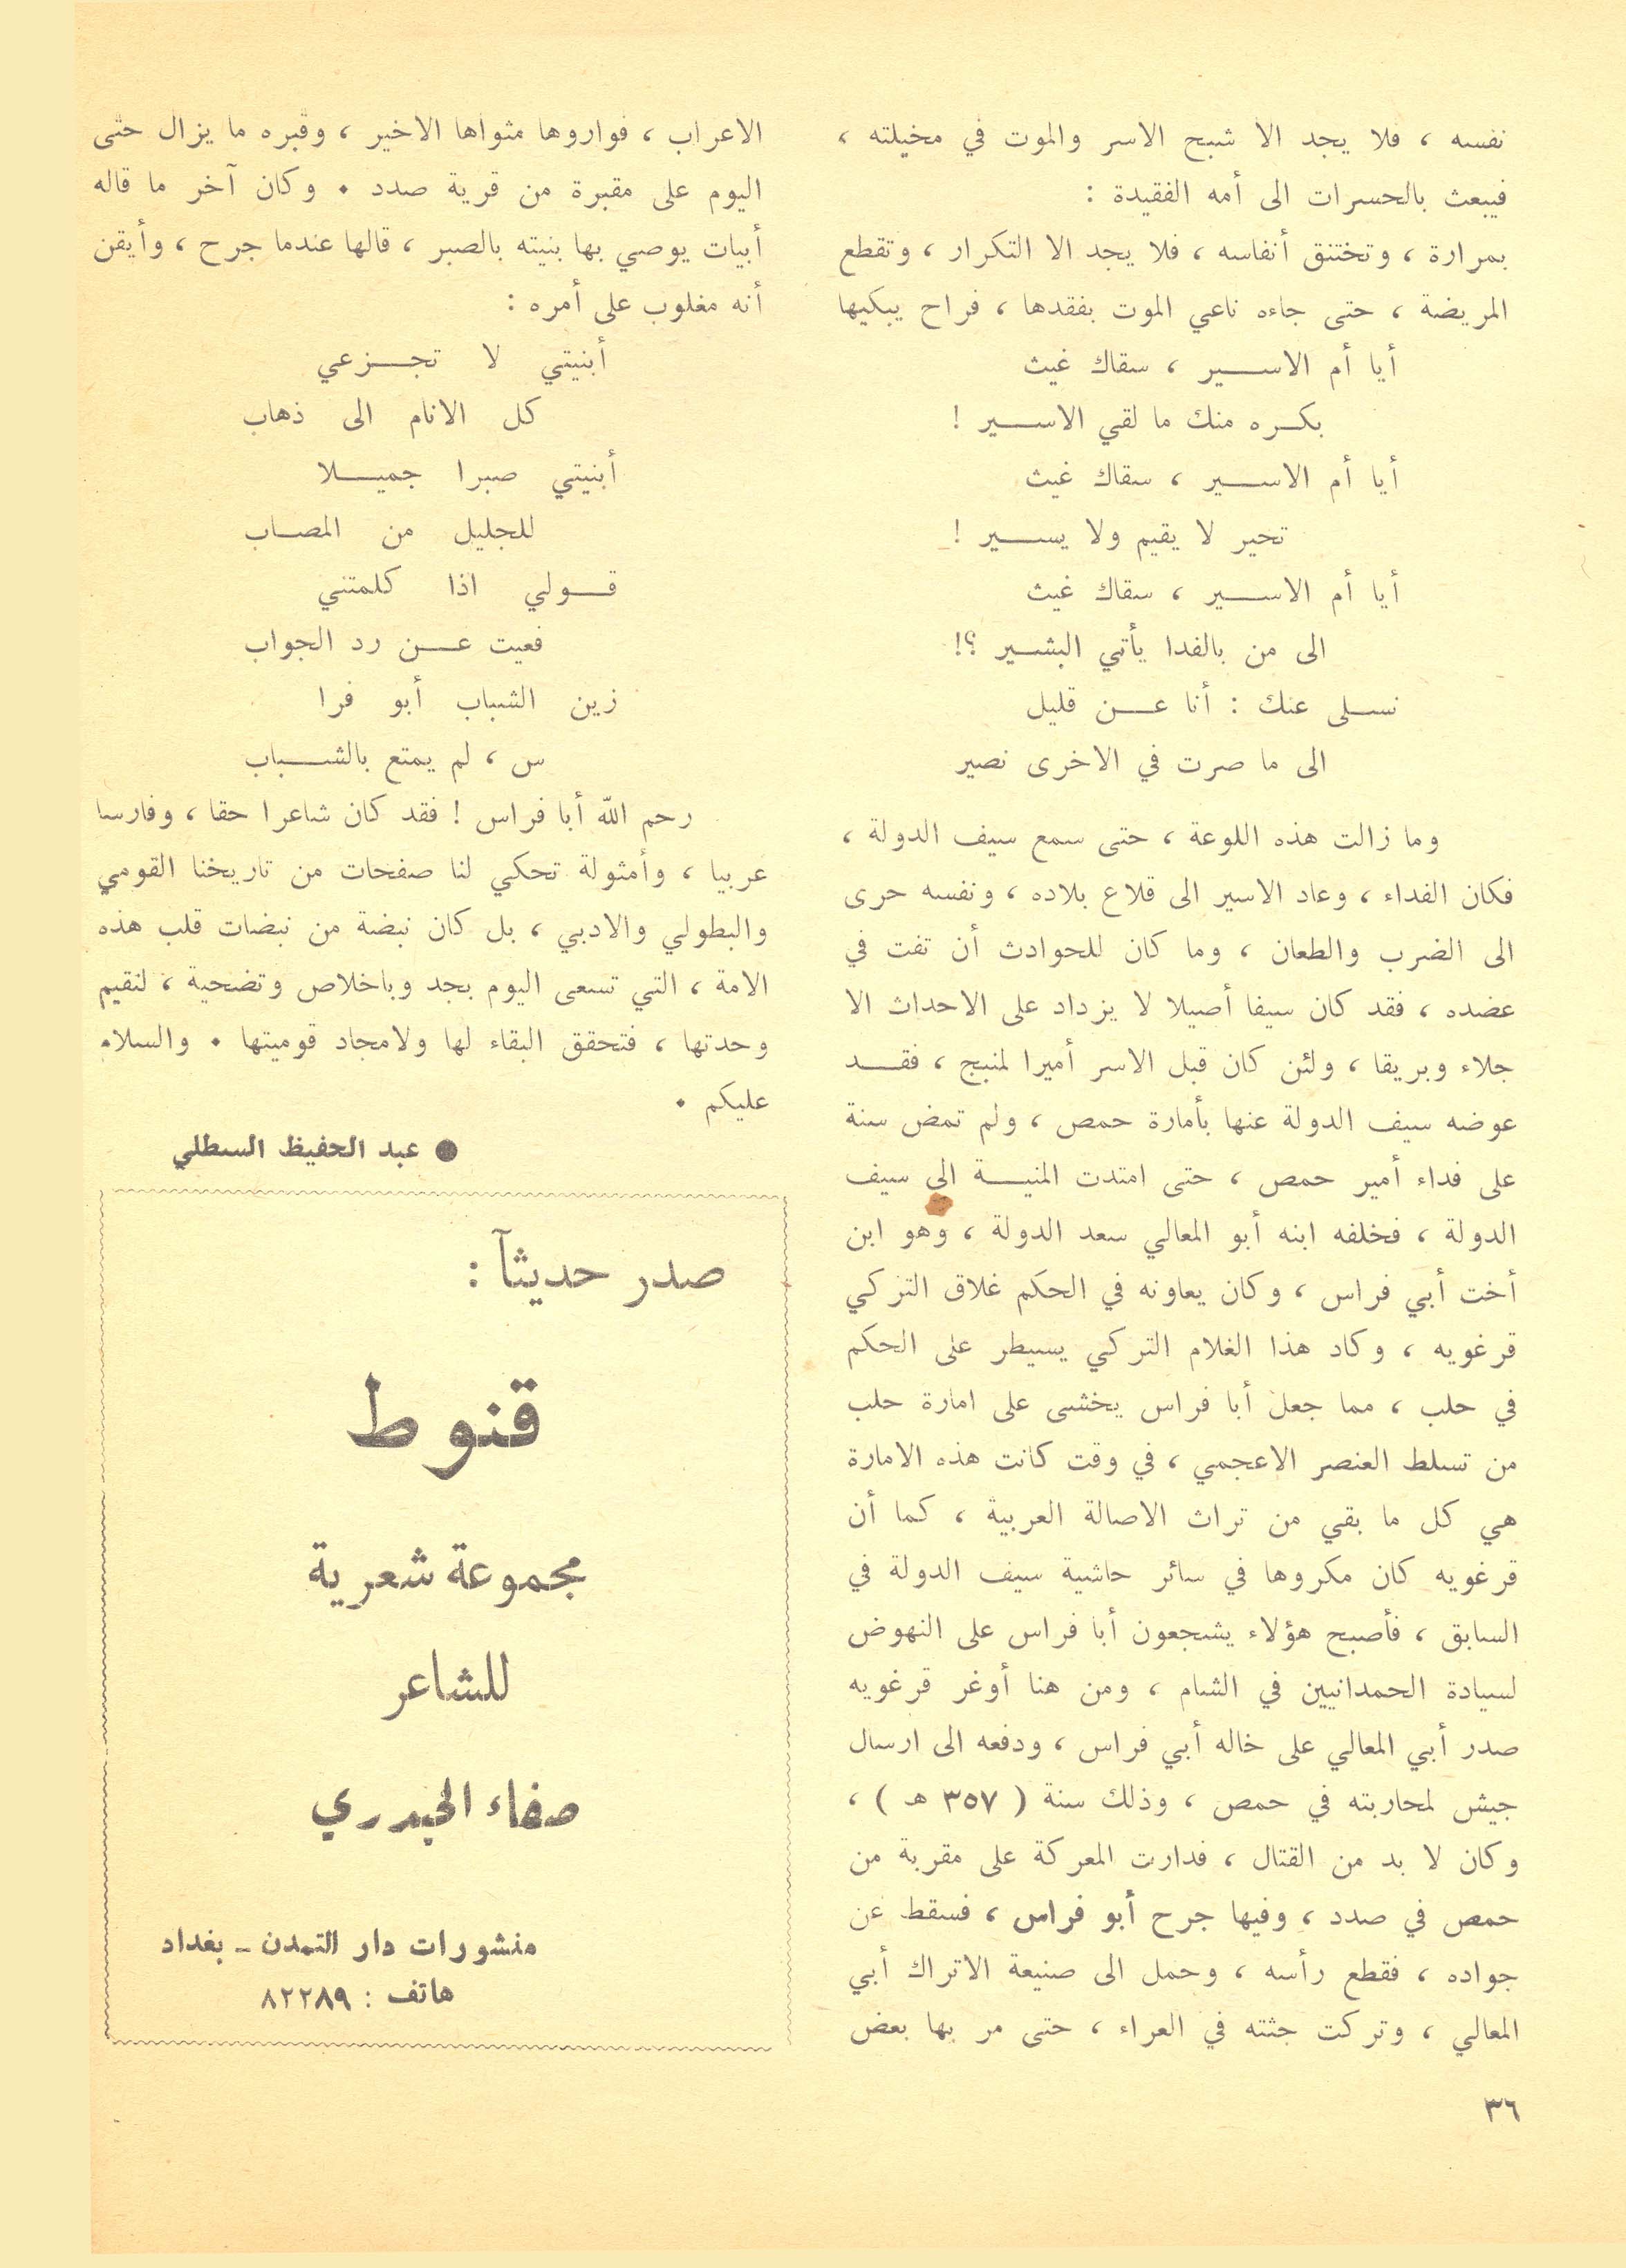 نفسه ، فلا يجد الا شبح الاسر والموت في مخيلته ،
فيبعث بالحسرات الى أمه الفقيدة :
بمرارة ، وتختنق أنفاسه ، فلا يجد الا التكرار ، وتقطع
المريضة ، حتى جاءه ناعي الموت بفقدها ، فراح يبكيها
أيا أم الاسير ، سقاك غيث
بكره منك ما لقي الاسير !
أيا أم الاسير ، سقاك غيث
تحير لا يقيم ولا يسير !
أيا أم الاسير ، سقاك غيث
الى من بالفدا يأتي البشير ؟!
نسلى عنك : أنا عن قليل
الى ما صرت في الاخرى نصير
وما زالت هذه اللوعة ، حتى سمع سيف الدولة ،
فكان الفداء ، وعاد الاسير الى قلاع بلاده ، ونفسه حرى
الى الضرب والطعان ، وما كان للحوادث أن تفت في
عضده ، فقد كان سيفا أصيلا لا يزداد على الاحداث الا
جلاء وبريقا ، ولئن كان قبل الاسر أميرا لمنبج ، فقد
عوضه سيف الدولة عنها بأمارة حمص ، ولم تمض سنة
على فداء أمير حمص ، حتى امتدت المنية الى سيف
الدولة ، فخلفه ابنه أبو المعالي سعد الدولة ، وهو ابن
أخت أبي فراس ، وكان يعاونه في الحكم غلاق التركي
قرغويه ، وكاد هذا الغلام التركي يسيطر على الحكم
في حلب ، مما جعل أبا فراس يخشى على امارة حلب
من تسلط العنصر الاعجمي ، في وقت كانت هذه الامارة
هي كل ما بقي من تراث الاصالة العربية ، كما أن
قرغويه كان مكروها في سائر حاشية سيف الدولة في
السابق ، فأصبح هؤلاء يشجعون أبا فراس على النهوض
لسيادة الحمدانيين في الشام ، ومن هنا أوغر قرغويه
صدر أبي المعالي على خاله أبي فراس ، ودفعه الى ارسال
جيش لمحاربته في حمص ، وذلك سنة ( ٣٥٧ هـ ) ،
وكان لا بد من القتال ، فدارت المعركة على مقربة من
حمص في صدد ، وفيها جرح أبو فراس ، فسقط عن
جواده ، فقطع رأسه ، وحمل الى صنيعة الاتراك أبي
المعالي ، وتركت جثته في العراء ، حتى مر بها بعض
الاعراب ، فواروها مثواها الاخير ، وقبره ما يزال حتى
اليوم على مقبرة من قرية صدد . وكان آخر ما قاله
أبيات يوصي بها بنيته بالصبر ، قالها عندما جرح ، وأيقن
أنه مغلوب على أمره :
أبنيتي لا تجزعي
كل الانام الى ذهاب
أبنيتي صبرا جميلا
للجليل من المصاب
قولي اذا كلمتني
فعيت عن رد الجواب
زين الشباب أبو فرا
س ، لم يمتع بالشباب
رحم الله أبا فراس ! فقد كان شاعرا حقا ، وفارسا
عربيا ، وأمثولة تحكي لنا صفحات من تاريخنا القومي
والبطولي والادبي ، بل كان نبضة من نبضات قلب هذه
الامة ، التي تسعى اليوم بجد وباخلاص وتضحية ، لتقيم
وحدتها ، فتحقق البقاء لها ولامجاد قوميتها . والسلام
عليكم .
● عبد الحفيظ السطلي
صدر حديثآ :
قنوط
مجموعة شعرية
للشاعر
صفاء الحيدري
منشورات دار التمدن - بغداد
هاتف : ٨٢٢٨٩
٣٦